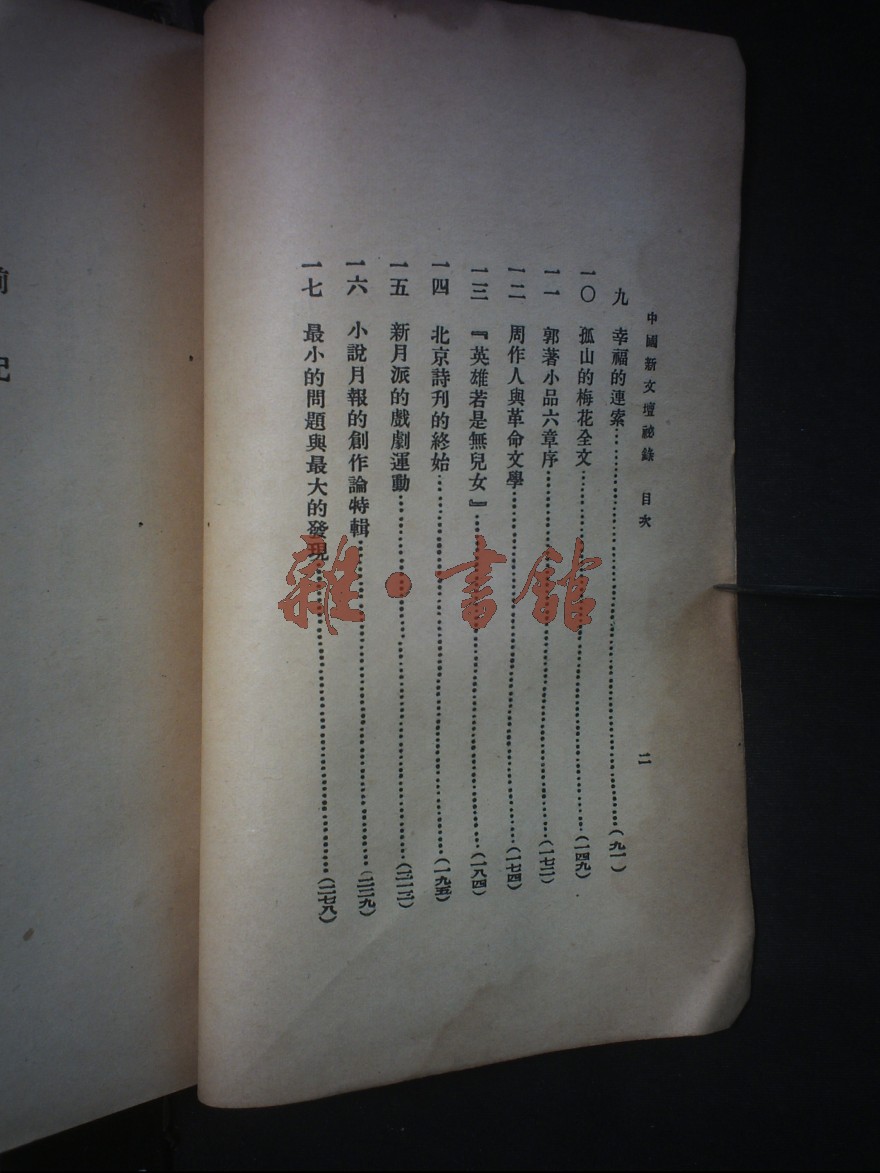 中國新文壇祕錄 目次 二
九 幸福的連索……(九一)
一〇 孤山的梅花全文……(一四九)
一一 郭著小品六章序……(一七二)
一二 周作人與革命文學……(一七四)
一三 『英雄若是無兒女』……(一八四)
一四 北京詩刊的終始……(一九五)
一五 新月派的戲劇運動……(二一二)
一六 小說月報的創作論特輯……(二二九)
一七 最小的問題與最大的發現……(二七八)
雜·書館
記